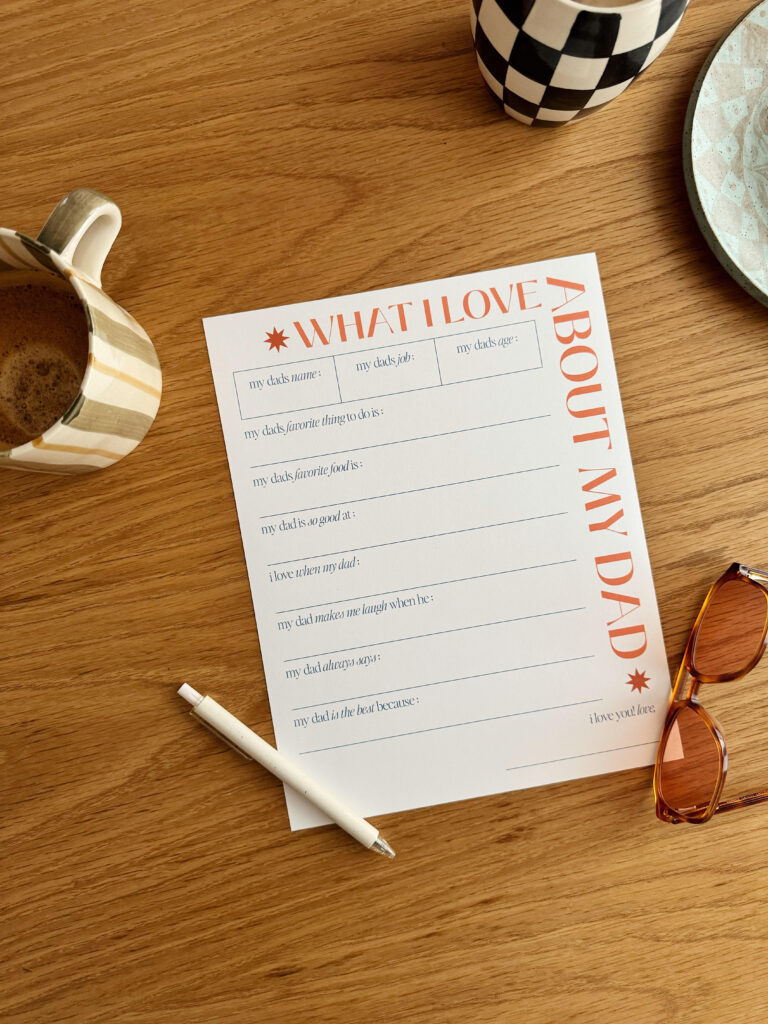 WHAT I LOVE
ABOUT MY DAD
my dads name:
my dads job:
my dads age:
my dads favorite thing to do is:
my dads favorite food is:
my dad is so good at:
i love when my dad:
my dad makes me laugh when he:
my dad always says:
my dad is the best because:
i love you! love,